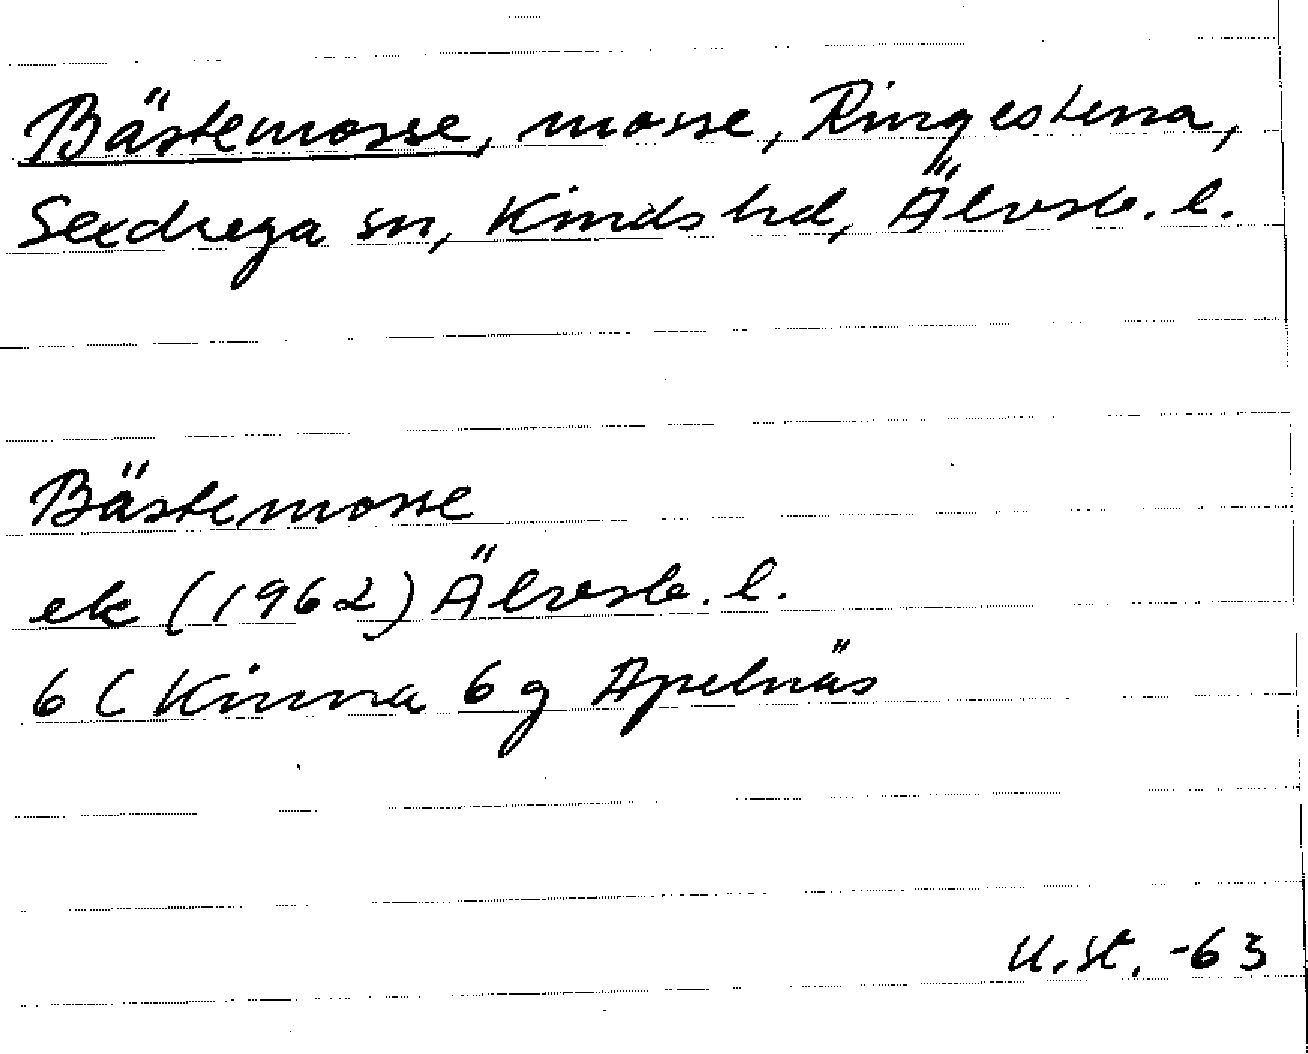 Bästemosse, mosse, Ringestena,
Sexdrega sn, Kinds hd, Älvsb. l.
Bästemosse
ek (1962) Älvsb. l.
6 C Kinna 6 g Apelnäs
U.St. -63